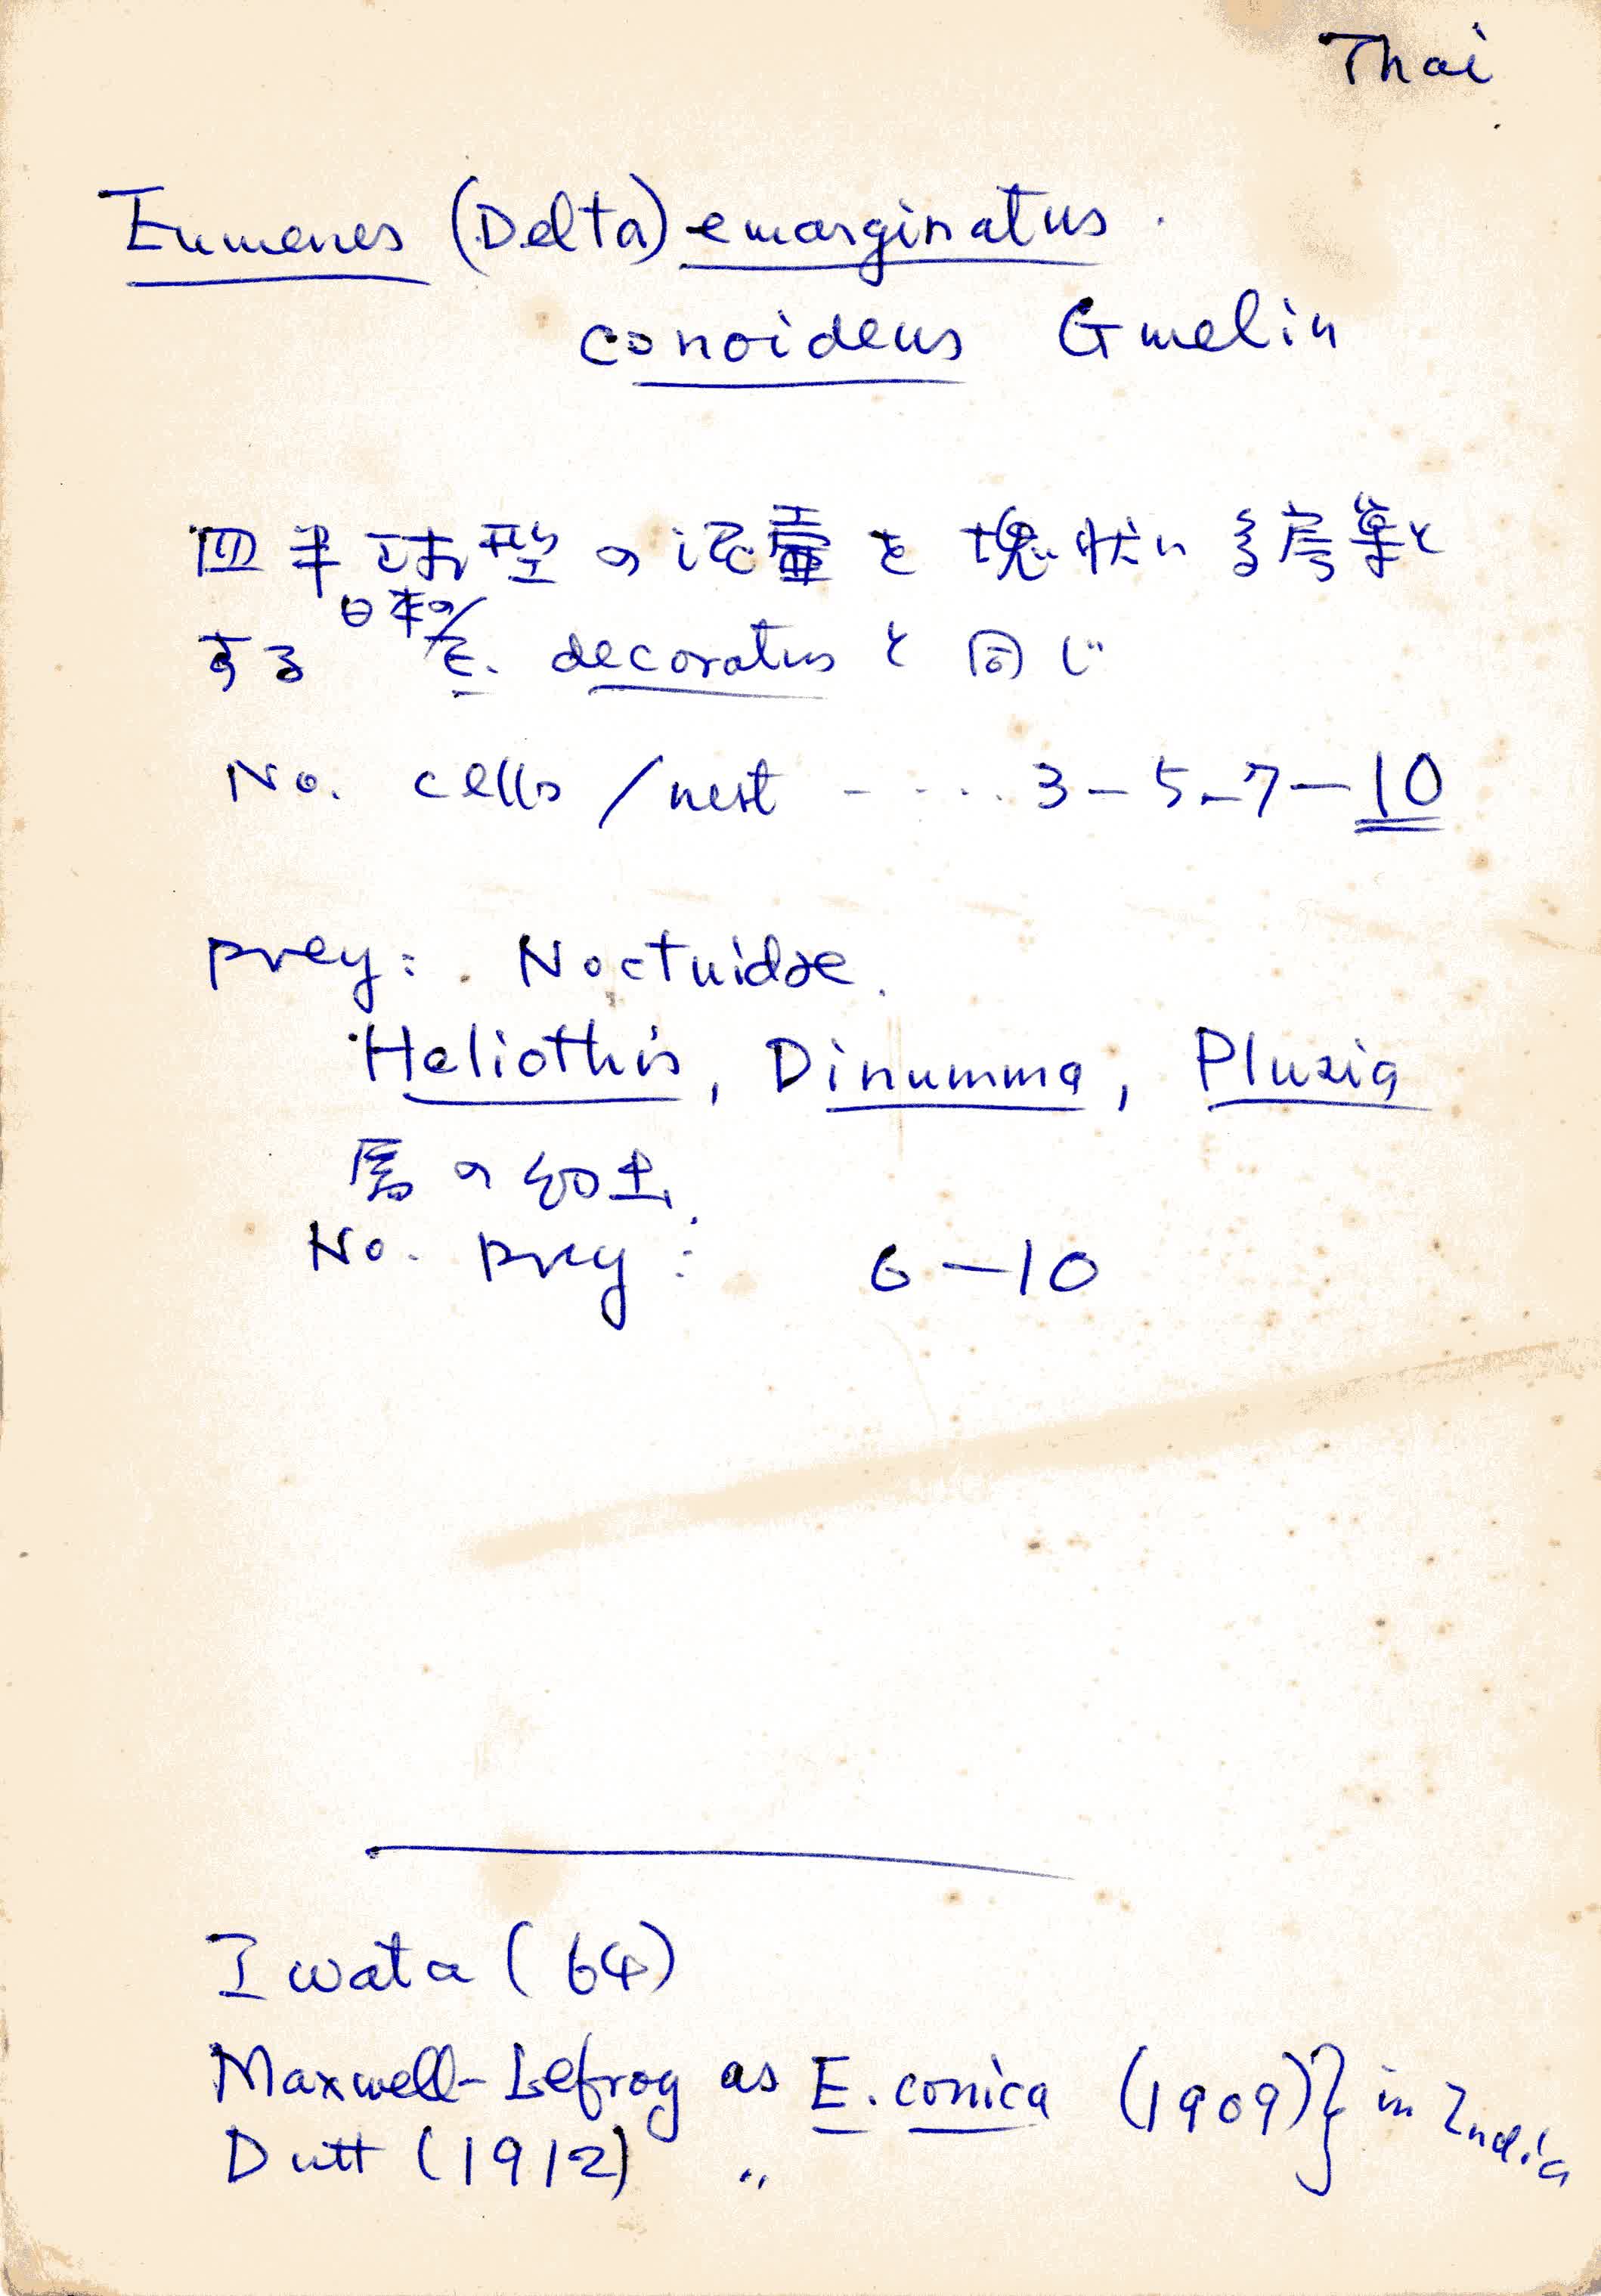 Thai
Eumenes (Delta) emarginatus
conoideus Gmelin
四半球型の泥壷を塊状に多房巣と
日本の
する E. decoratus と同じ
No. cells / nest - ‥‥ 3-5-7-10
prey: Noctuidae.
Heliothis, Dinumma, Plusia
属の幼虫
No. prey: 6-10
Iwata (64)
Maxwell-Lefroy as E. conica (1909)} in India
Dutt (1912) 〃